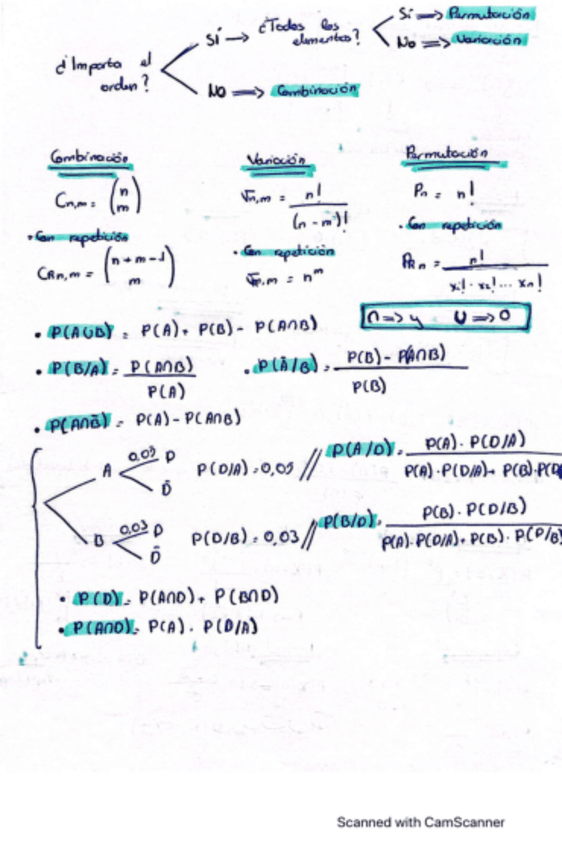 ¿Importa el orden?
Sí → ¿Todos los elementos?
Sí ⇒ Permutación
No ⇒ Variación
No ⇒ Combinación
Combinación
Cn,m = (n m)
• Con repetición
CRn,m = (n+m-1 m)
Variación
Vn,m = n! / (n-m)!
• Con repetición
= n^m
Permutación
Pn = n!
• Con repetición
PRn = n! / x1! · x2! ... xn!
∩ => y U => o
• P(A∪B) = P(A) + P(B) - P(A∩B)
• P(B/A) = P(A∩B) / P(A)
• P(Ā/B) = P(B) - P(A∩B) / P(B)
• P(A∩B̄) = P(A) - P(A∩B)
A 0,05 D
D̄
P(D/A) = 0,05 // P(A/D) = P(A) · P(D/A) / P(A) · P(D/A) + P(B) · P(D
B 0,03 D
D̄
P(D/B) = 0,03 // P(B/D) = P(B) · P(D/B) / P(A) · P(D/A) + P(B) · P(D/B)
• P(D) = P(A∩D) + P(B∩D)
• P(A∩D) = P(A) · P(D/A)
Scanned with CamScanner